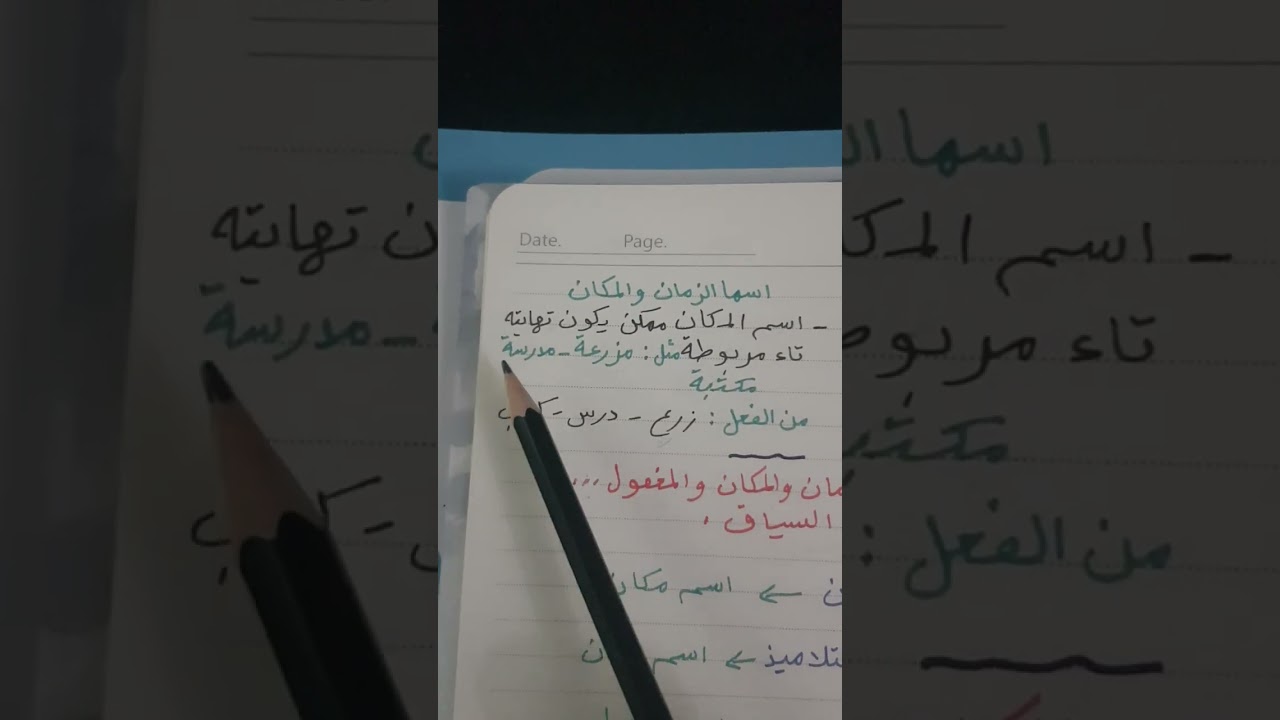 Date. Page.
اسما الزمان والمكان
- اسم المكان ممكن يكون نهايته
تاء مربوطة مثل : مزرعة - مدرسة
مكتبة
من الفعل : زرع - درس -
والمكان والمفعول ...
السياق .
← اسم مكان
← اسم